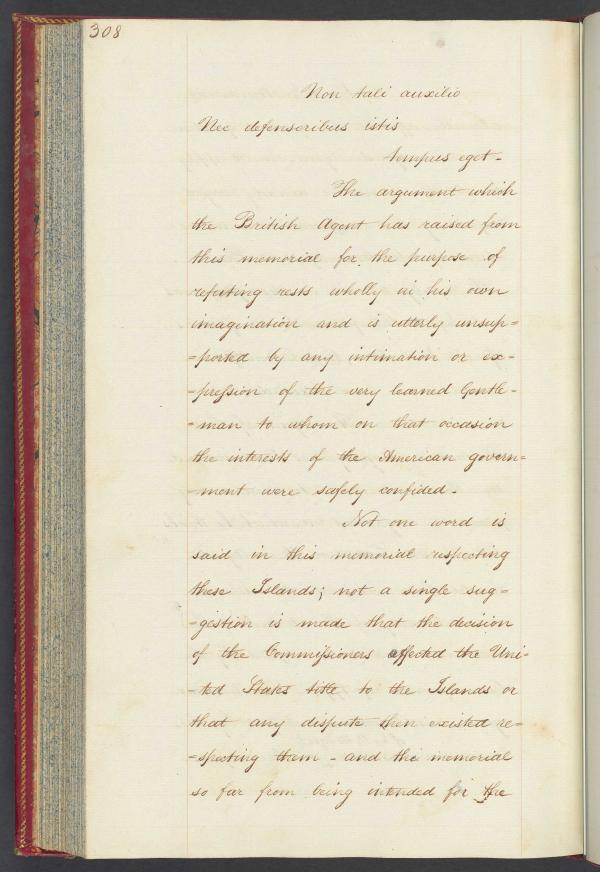 308
Non tali auxilio
Nec defensoribus istis
tempus eget-
The argument which
the British Agent has raised from
this memorial for the purpose of
refuting rests wholly in his own
imagination and is utterly unsup=
=ported by any intimation or ex-
-pression of the very learned Gentle-
-man to whom on that occasion
the interests of the American govern=
-ment were safely confided-
Not one word is
said in this memorial respecting
these Islands; not a single sug=
-gestion is made that the decision
of the Commissioners affected the Uni-
-ted States title to the Islands or
that any dispute then existed re=
=specting them - and the memorial
so far from being intended for the